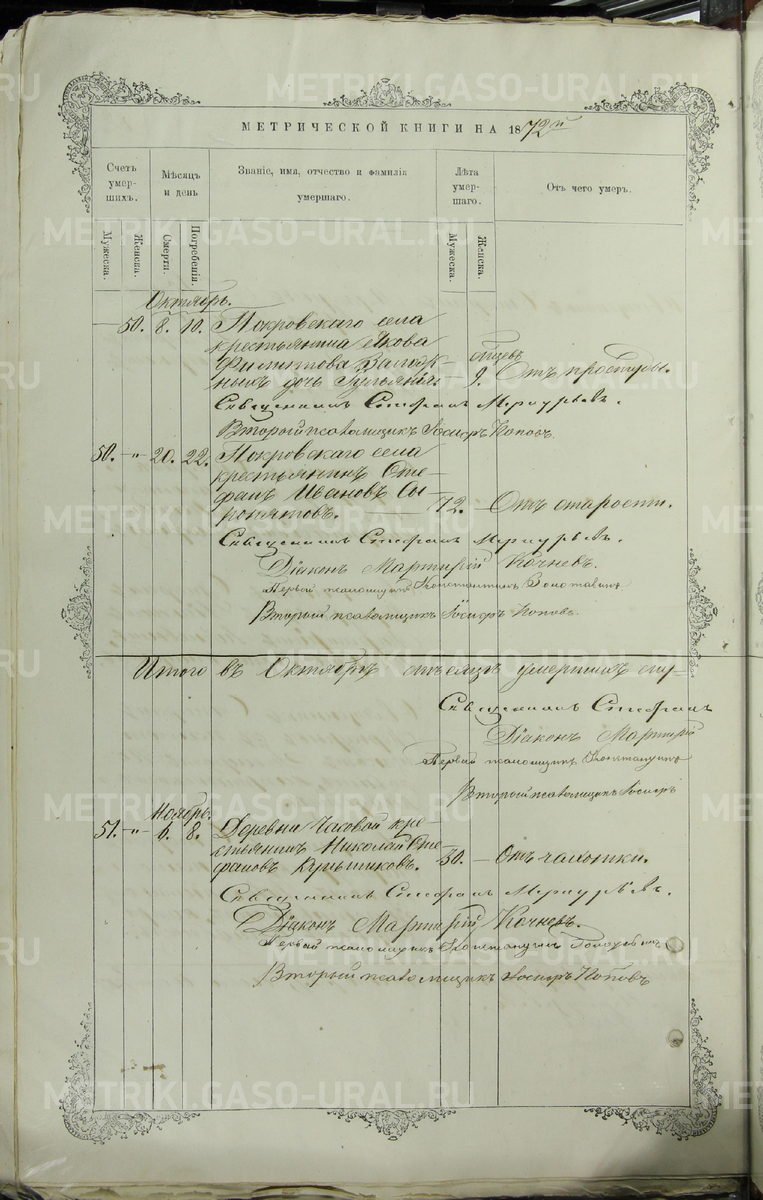 МЕТРИЧЕСКОЙ КНИГИ НА 1872й
Счетъ умер-шихъ.
Мѣсяцъ и день
Званіе, имя, отчество и фамилія умершаго.
Лѣта умер-шаго.
Отъ чего умеръ.
Мужеска.
Женска.
Смерти.
Погребенія.
Мужеска.
Женска.
Октябрь.
50. 8. 10. Покровскаго села
крестьянина Якова
Филиппова дочь мѣсяцевъ
9. Отъ простуды.
Священникъ Стефанъ Меркурьевъ.
Второй псаломщикъ Іосифъ Поповъ.
50. — " — 20. 22. Покровскаго села
крестьянинъ Сте-
фанъ Ивановъ Сы-
ропятовъ. — 72. — Отъ старости.
Священникъ Стефанъ Меркурьевъ.
Діаконъ Мартирій Кочневъ.
Первый псаломщикъ Константинъ
Второй псаломщикъ Іосифъ Поповъ.
Итого въ Октябрѣ мѣсяцѣ умершихъ
Священникъ Стефанъ
Діаконъ Мартирій
Первый псаломщикъ Константинъ
Второй псаломщикъ Іосифъ
Ноябрь.
51. — " — 6. 8. Деревни Часовой кре-
стьянинъ Николай Сте-
фановъ 50. — Отъ чахотки.
Священникъ Стефанъ Меркурьевъ.
Діаконъ Мартирій Кочневъ.
Первый псаломщикъ Константинъ
Второй псаломщикъ Іосифъ Поповъ
METRIKI.GASO-URAL.RU